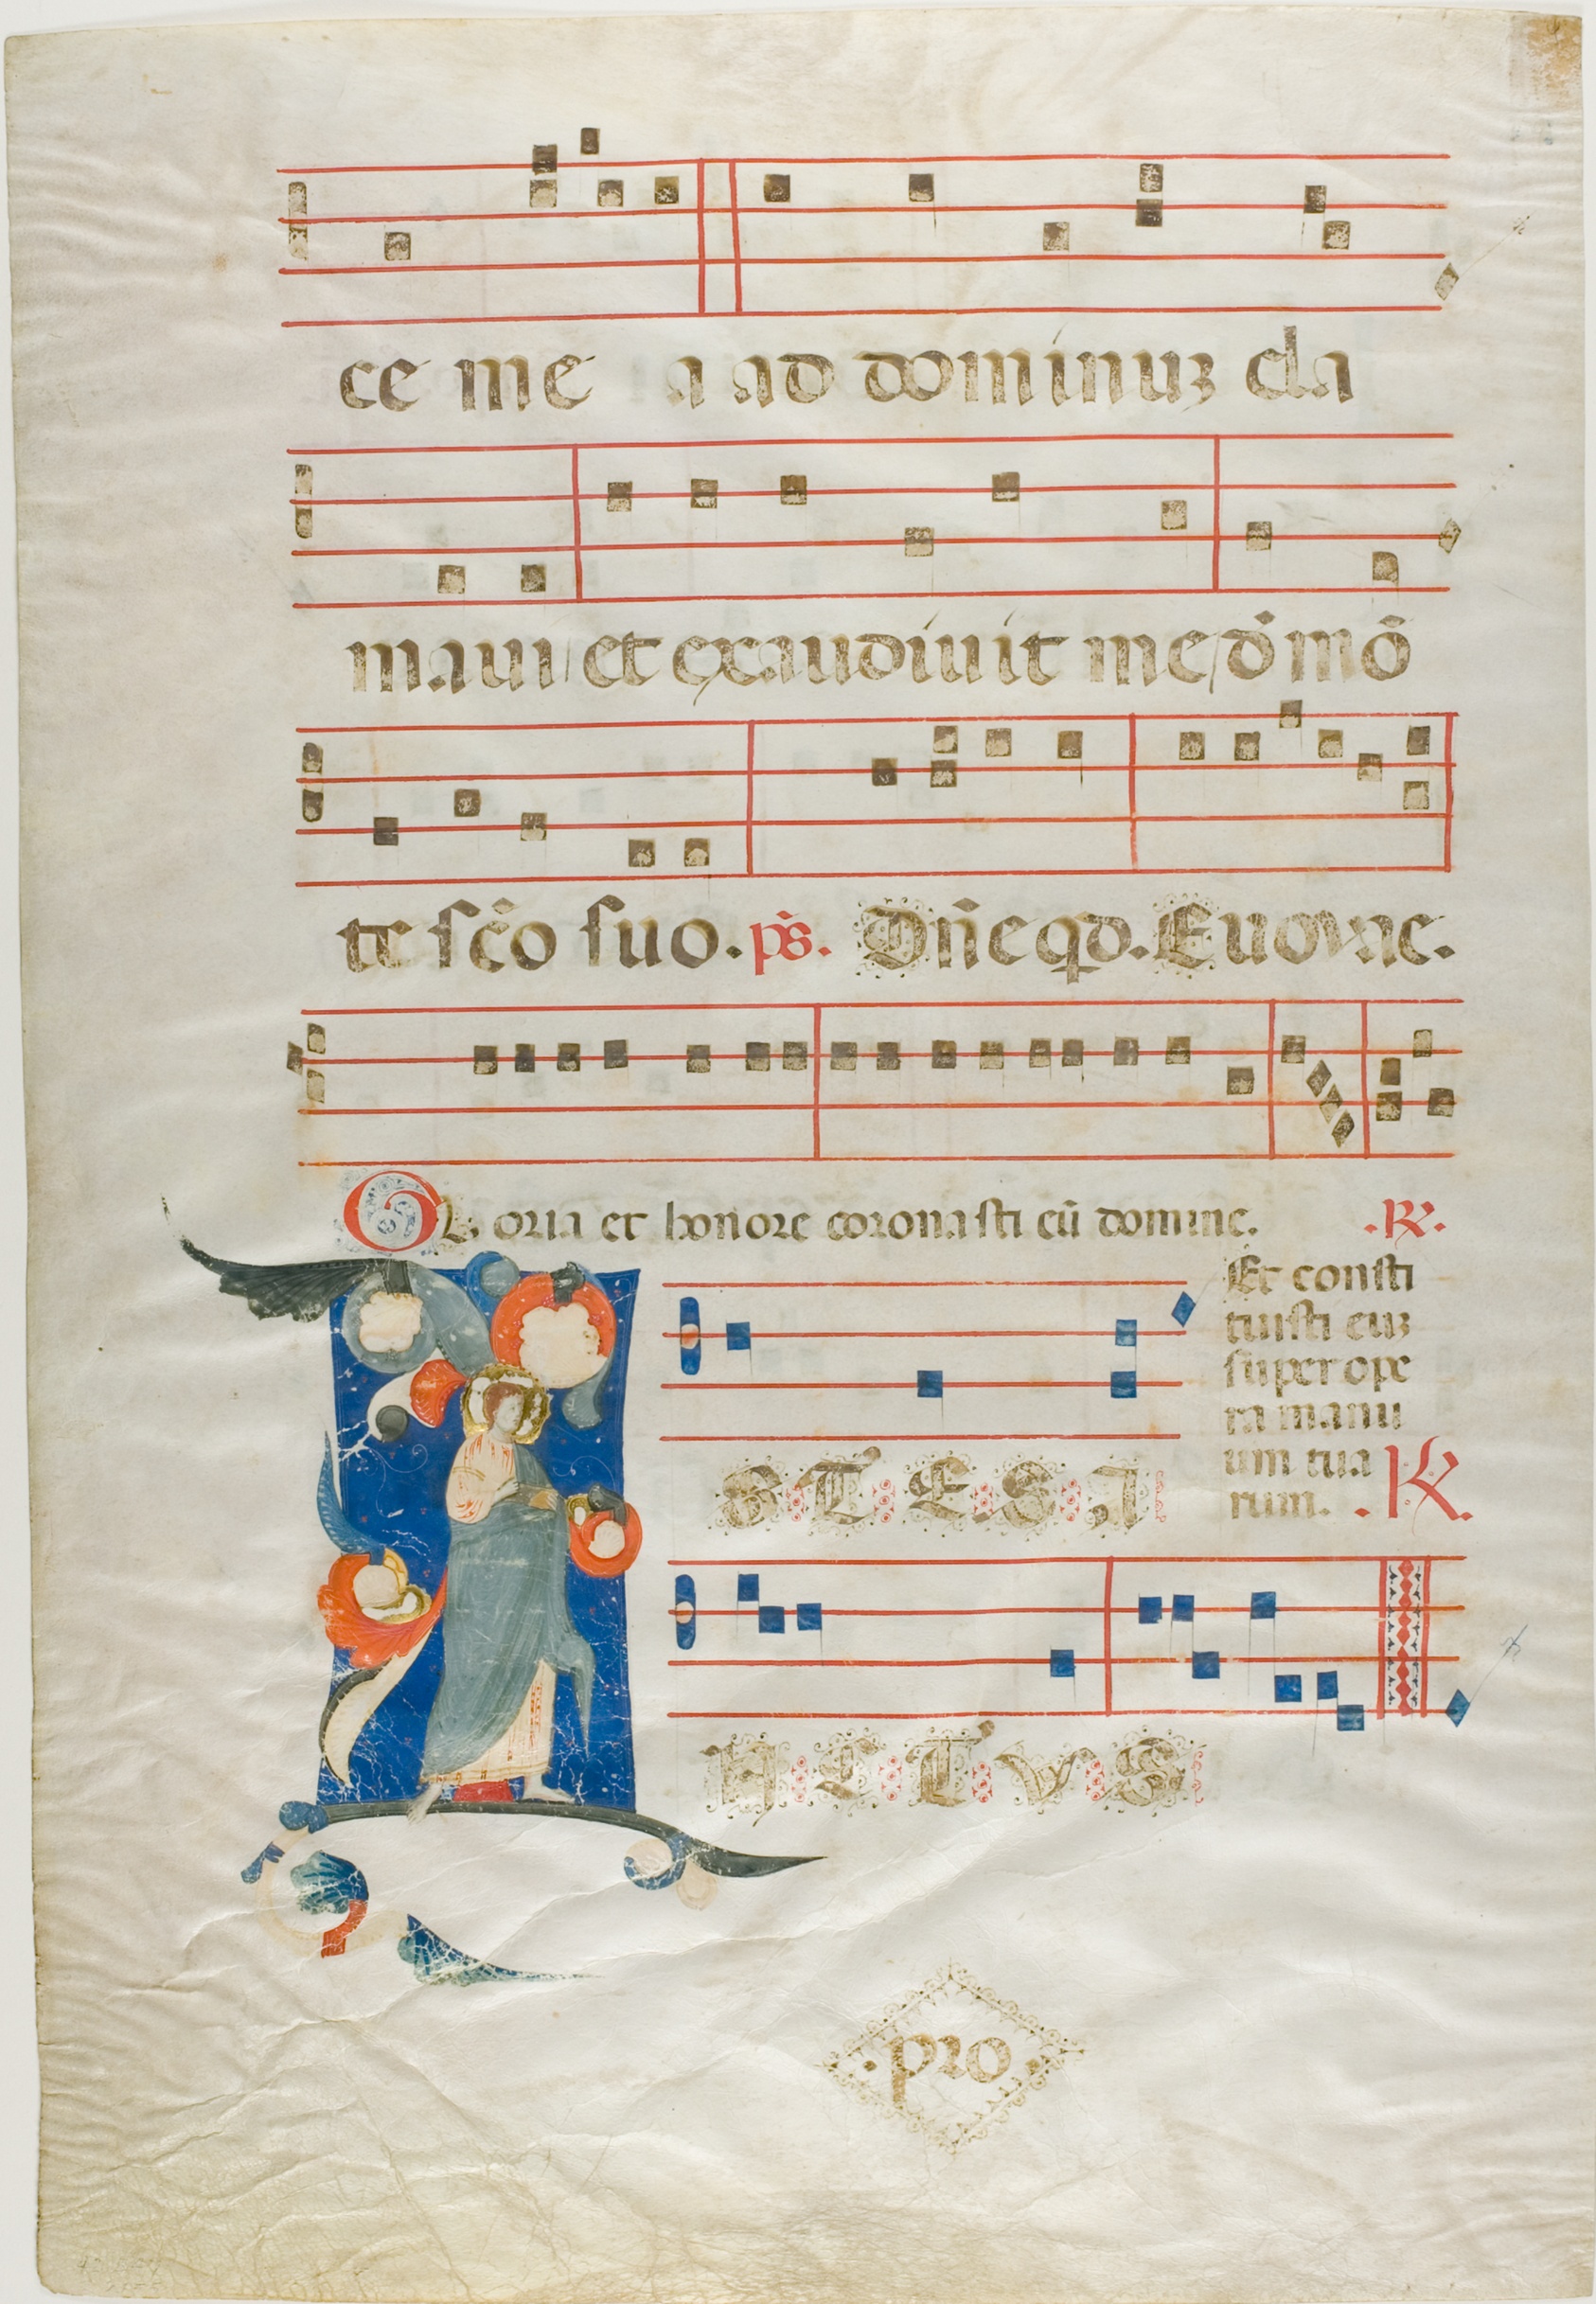 ce me a ad dominuꝫ cla
maui et exaudiuit me de mō
te sc̄o suo. p̄s. Dn̄e qd. Euouae.
Gloria et honore coronasti eū domine. .℟.
Et consti
tuisti euꝫ
super ope
ra manu
um tua
rum. .℟.
STESI
NCTVS
.pro.